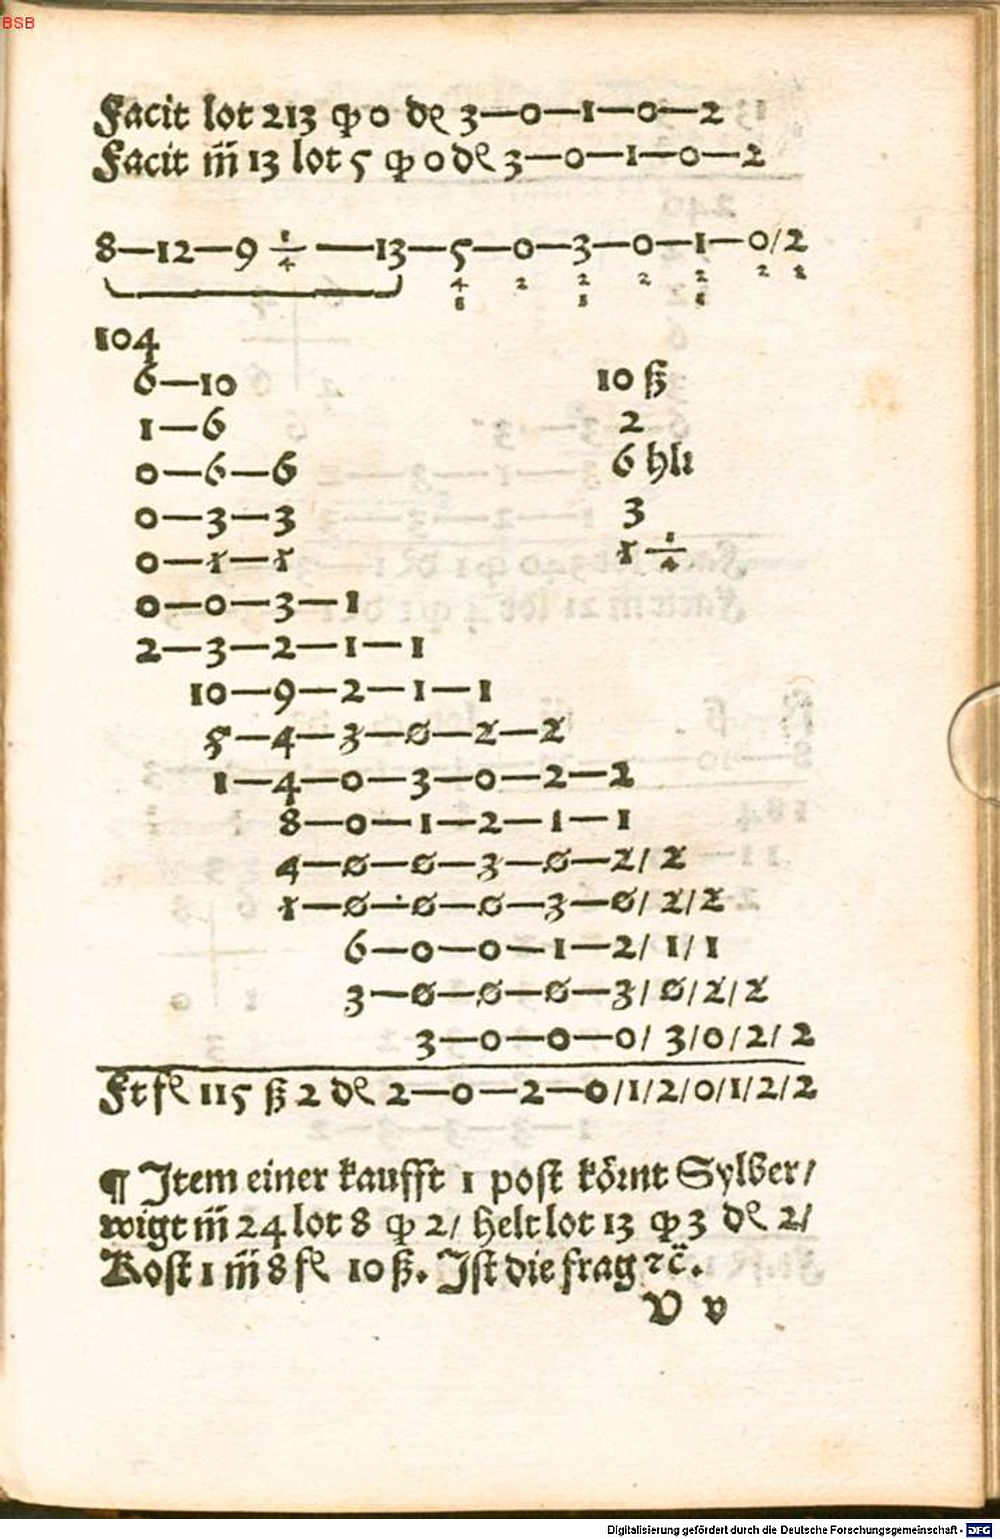 BSB
Facit lot 213 qp 0 de 3—0—1—0—2
Facit m̃ 13 lot 5 qp 0 de 3—0—1—0—2
8—12—9 1/4 —13—5—0—3—0—1—0/2
4 2 2 2 2 2
8 8 8
104
6—10
10 ß
1—6
2
0—6—6
6 hlr
0—3—3
3
0—1—1
1 1/4
0—0—3—1
2—3—2—1—1
10—9—2—1—1
5—4—3—0—2—2
1—4—0—3—0—2—2
8—0—1—2—1—1
4—0—0—3—0—2/2
1—0—0—0—3—0/2/2
6—0—0—1—2/1/1
3—0—0—0—3/0/2/2
3—0—0—0/3/0/2/2
Ft fl 115 ß 2 de 2—0—2—0/1/2/0/1/2/2
¶ Item einer kaufft 1 post körnt Sylber/
wigt m̃ 24 lot 8 qp 2/ helt lot 13 qp 3 de 2/
Kost 1 m̃ 8 fl 10 ß. Ist die frag ⁊c̈.
V v
Digitalisierung gefördert durch die Deutsche Forschungsgemeinschaft - DFG